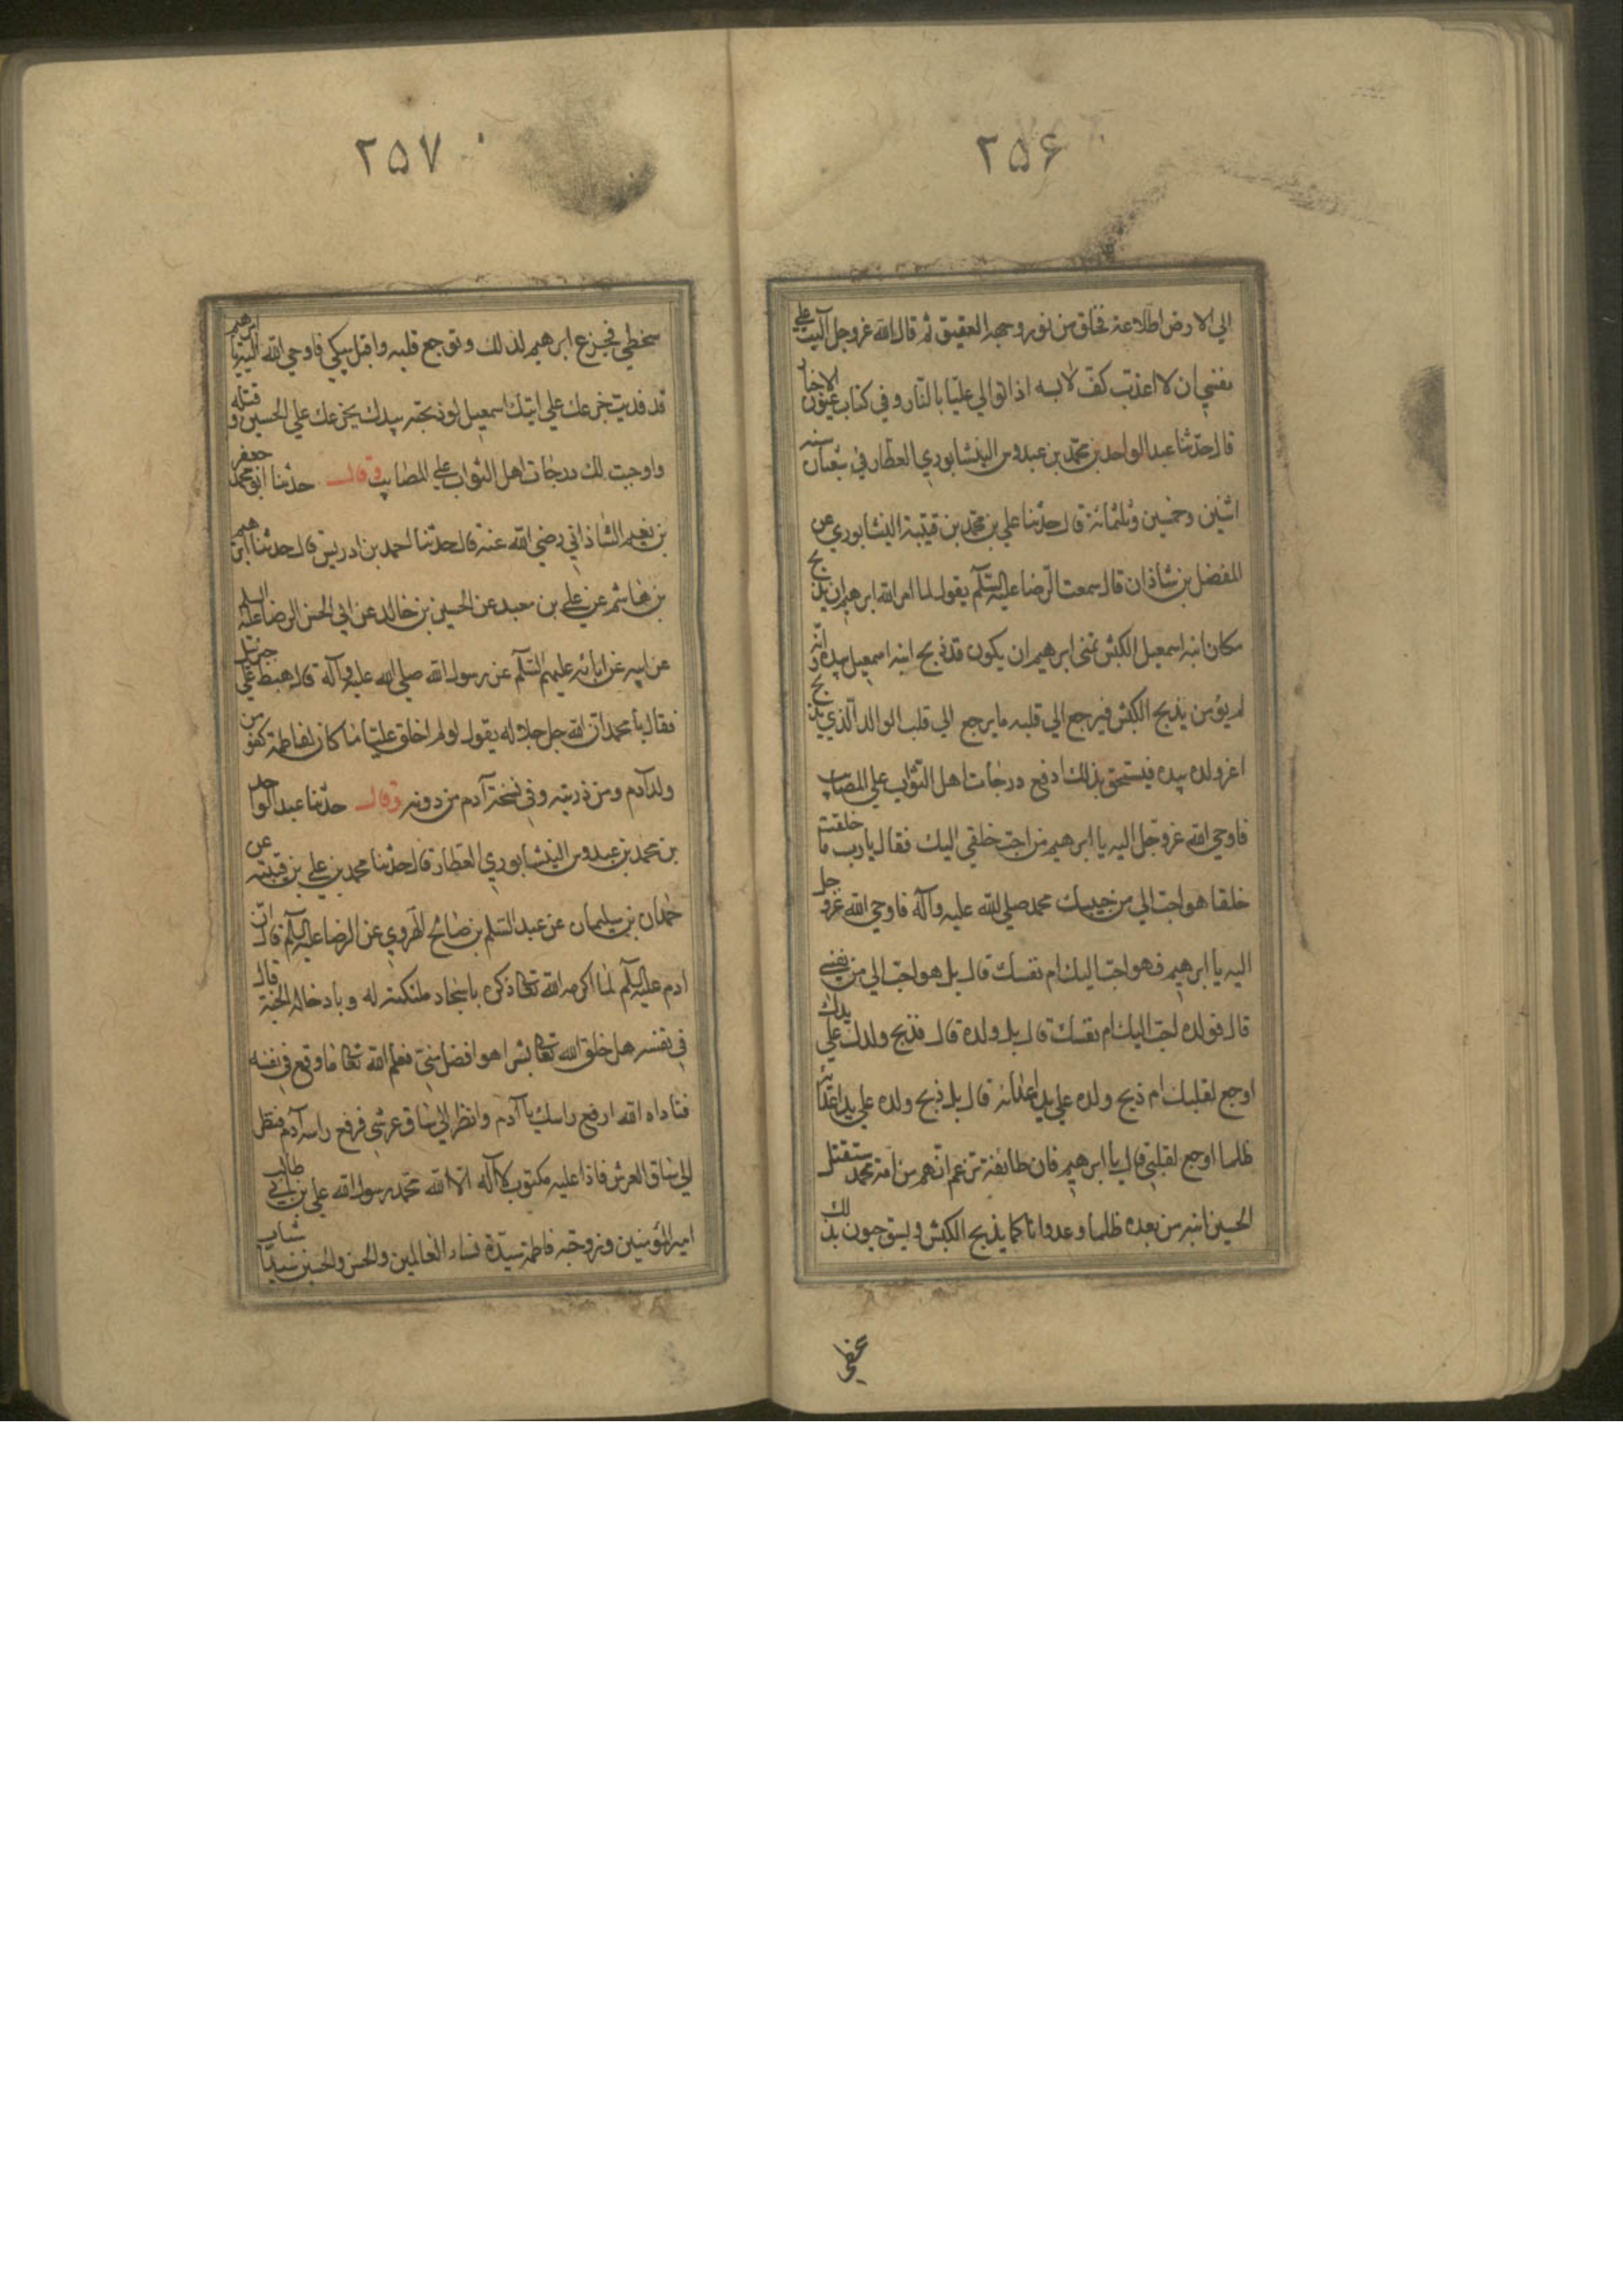 ۲۵۶
الي الارض اطلاعة فخلق من نور وجهه العقيق ثم قال الله عز وجل آليت علي
نفسي ان لا اعذب كف لابسه اذا توالي عليا بالنار وفي كتاب عيون الاخبار
قال حدثنا عبد الواحد بن محمد بن عبدوس النيشابوري العطار في شعبان سنه
اثنين وخمسين وثلثمائة قال حدثنا علي بن محمد بن قتيبة النيشابوري عن
المفضل بن شاذان قال سمعت الرضا عليه السلم يقول لما امر الله ابرهيم ان يذبح
مكان ابنه اسمعيل الكبش تمني ابرهيم ان يكون قد ذبح ابنه اسمعيل بيده وانه
لم يؤمر بذبح الكبش فيرجع الي قلبه ما يرجع الي قلب الوالد الذي يذبح
اعز ولده بيده فيستحق بذلك ارفع درجات اهل الثواب علي المصايب
فاوحي الله عز وجل اليه يا ابرهيم من احب خلقي اليك فقال يا رب ما خلقت
خلقا هو احب الي من حبيبك محمد صلي الله عليه وآله فاوحي الله عز وجل
اليه يا ابرهيم فهو احب اليك ام نفسك قال بل هو احب الي من نفسي
قال فولده احب اليك ام نفسك قال بل ولده قال فذبح ولدك علي يدك
اوجع لقلبك ام ذبح ولده علي يد اعدائه قال بل ذبح ولده علي يد اعدائه
ظلما اوجع لقلبي قال يا ابرهيم فان طائفة تزعم انهم من امة محمد ستقتل
الحسين ابنه من بعده ظلما وعدوانا كما يذبح الكبش ويستوجبون بذلك
سخطي
۲۵۷
سخطي فجزع ابرهيم لذلك وتوجع قلبه واقبل يبكي فاوحي الله اليه يا ابرهيم
قد فديت جزعك علي ابنك اسمعيل لو ذبحته بيدك بجزعك علي الحسين وقتله
واوجبت لك درجات اهل الثواب علي المصايب وقال حدثنا ابو محمد جعفر
بن نعيم الشاذاني رضي الله عنه قال حدثنا احمد بن ادريس قال حدثنا ابرهيم
بن هاشم عن علي بن معبد عن الحسين بن خالد عن ابي الحسن الرضا عليه السلم
عن ابيه عن ابائه عليهم السلم عن رسول الله صلي الله عليه وآله قال هبط علي جبرئيل
فقال يا محمد ان الله جل جلاله يقول لو لم اخلق عليا ما كان لفاطمة كفو من
ولد آدم ومن ذريته وفي نسخة آدم من دونه وقال حدثنا عبد الواحد
بن محمد بن عبدوس النيشابوري العطار قال حدثنا محمد بن علي بن قتيبه عن
حمدان بن سليمان عن عبد السلم بن صالح الهروي عن الرضا عليه السلم قال ان
ادم عليه السلم لما اكرمه الله تعالي ذكره باسجاد ملئكته له وبادخاله الجنة قال
في نفسه هل خلق الله تعالي بشرا هو افضل مني فعلم الله تعالي ما وقع في نفسه
فناداه الله ارفع راسك يا آدم وانظر الي ساق عرشي فرفع راسه آدم فنظر
الي ساق العرش فاذا عليه مكتوب لا آله الا الله محمد رسول الله علي بن ابي طالب
امير المؤمنين وزوجته فاطمة سيدة نساء العالمين والحسن والحسين سيدا شباب